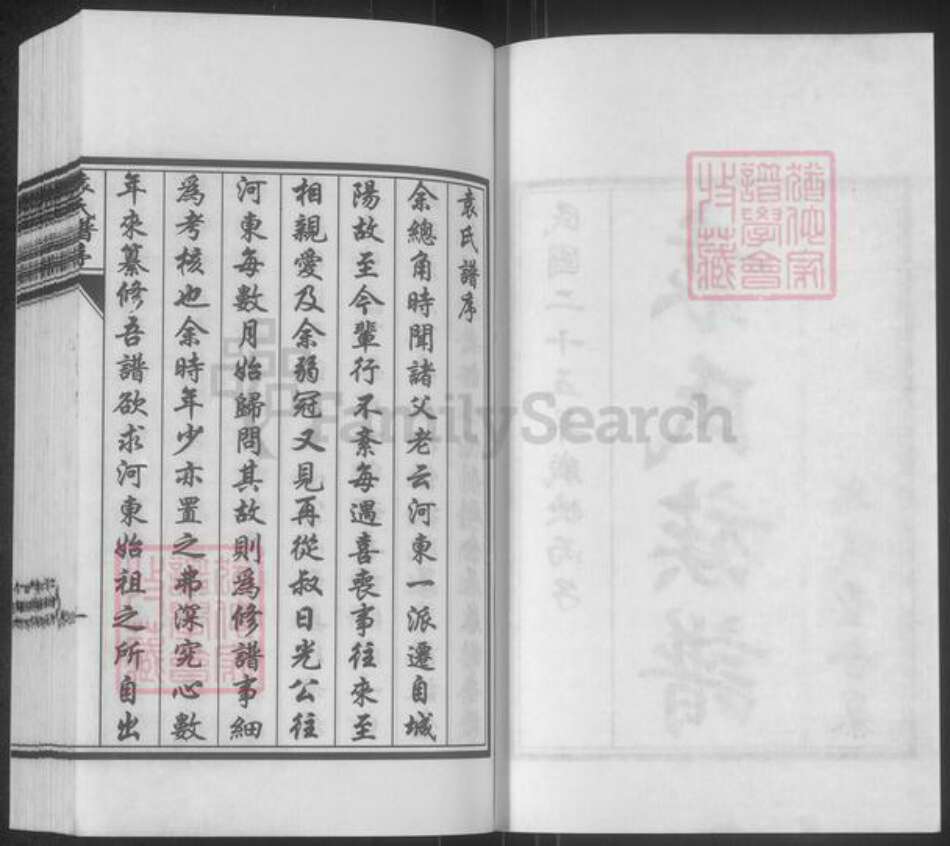 袁氏譜序
余總角時聞諸父老云河東一派遷自城
陽故至今輩行不紊每遇喜喪事往來至
相親愛及余弱冠又見再從叔日光公往
河東每數月始歸問其故則為修譜事細
為考核也余時年少亦置之弗深究心數
年來纂修吾譜欲求河東始祖之所自出
FamilySearch
家
譜學會
收藏